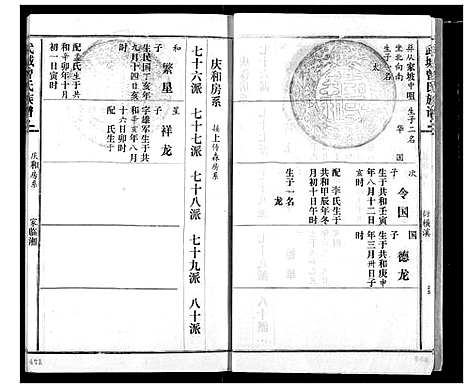 武城曾氏族谱
葬从家坟中
坐北向南
生子一名
太
生子二名
华
国
次子
令国
生于共和壬寅
年八月十二日
亥时
配李氏生于
共和甲辰年冬
月初十日午时
生子一名
龙
国子
德龙
生于共和庚申
年三月卅日子
时
衍横溪
庆和房系
接上传森房系
七十六派 七十七派 七十八派 七十九派 八十派
和子
繁星
生民国丁亥年
九月十四日亥
时
配孟氏生于共
和辛卯年十月
初一日寅时
星子
祥龙
字雄军生于共
和辛亥年八月
十六日卯时
配 氏生于
武城曾氏族谱
庆和房系
家临湘